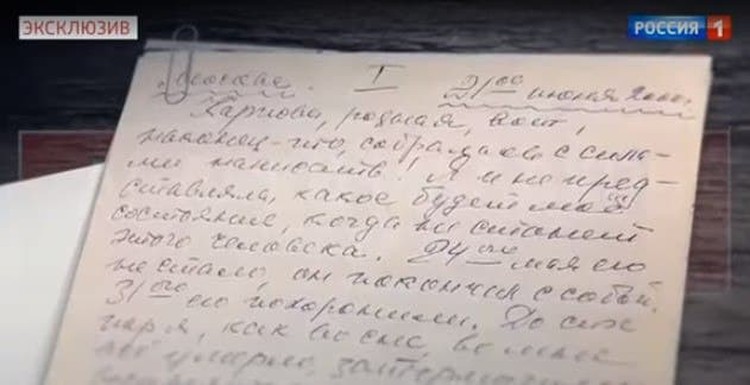 ЭКСКЛЮЗИВ
РОССИЯ 1
Москва. I 21ое июня 2000г.
Карпова, родная, вот,
наконец-то, собралась с сила-
ми написать! Я и не пред-
ставляла, какое будет моё
состояние, когда не станет
этого человека. 24ого мая его
не стало, он покончил с собой.
31ого его похоронили. До сих
пор я, как во сне, во мне
всё умерло,